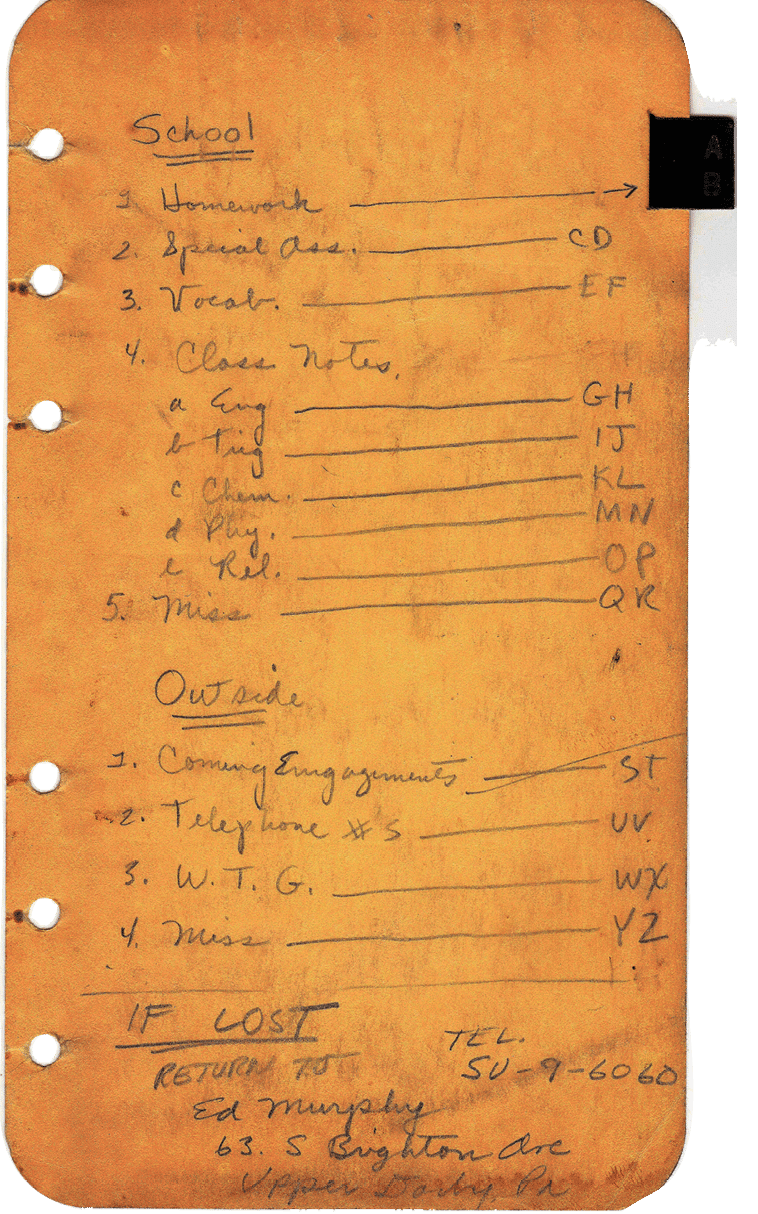 School
A
B
1. Homework →
2. Special Ass. CD
3. Vocab. EF
4. Class Notes.
a Eng GH
b Trig IJ
c Chem. KL
d Phy. MN
e Rel. OP
5. Miss QR
Outside
1. Coming Emgagements ST
2. Telephone #s UV
3. W. T. G. WX
4. Miss YZ
IF LOST
RETURN TO
TEL.
SU-9-6060
Ed Murphy
63. S Brighton Ave
Upper Darby, Pa